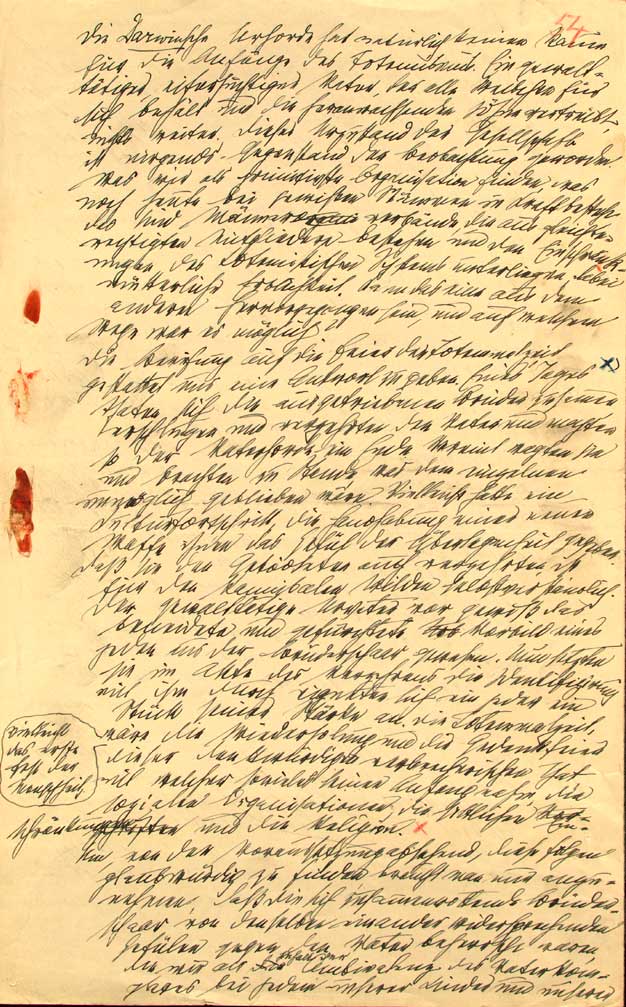 54
Die Darwinsche Urhorde hat natürlich keinen Raum
für die Anfänge des Totemismus. Ein gewalt-
tätiger eifersüchtiger Vater, der alle Weibchen für
sich behält und die heranwachsenden Söhne vertreibt,
nichts weiter. Dieser Urzustand der Gesellschaft
ist nirgends Gegenstand der Beobachtung geworden.
Was wir als primitivste Organisation finden, was
noch heute bei gewissen Stämmen in Kraft besteht,
das sind Männer verbände, die aus gleichbe-
rechtigten Mitgliedern bestehen und den Einschränk-
ungen des totemistischen Systems unterliegen, dabei
mütterliche Erblichkeit. Kann das eine aus dem
anderen hervorgegangen sein, und auf welchem
Wege war es möglich?
Die Berufung auf die Feier der Totemmalzeit
gestattet uns eine Antwort zu geben. Eines Tages
thaten sich die ausgetriebenen Brüder zusammen
erschlugen und verzehrten den Vater und machten
so der Vaterhorde ein Ende. Vereint wagten sie
und brachten zu Stande was dem einzelnen
unmöglich geblieben wäre. Vielleicht hatte ein
Culturfortschritt, die Handhabung einer neuen
Waffe ihnen das Gefühl der Überlegenheit gegeben.
Daß sie den Getödteten auch verzehrten ist
für den kannibalen Wilden selbstverständlich.
Der gewalttätige Urvater war gewiß das
beneidete und gefürchtete Vorbild eines
jeden aus der Brüderschaar gewesen. Nun setzten
sie im Akte des Verzehrens die Identifizierung
mit ihm durch, eigneten sich ein jeder ein
Stück seiner Stärke an. Die Totemmalzeit,
vielleicht
das erste
Fest der
Menschheit,
wäre die Wiederholung und die Gedenkfeier
dieser denkwürdigen verbrecherischen That
mit welcher soviel seinen Anfang nahm, die
sozialen Organisationen, die sittlichen Ein-
schränkungen und die Religion.
Um, von der Voraussetzung absehend, diese Folgen
glaubwürdig zu finden braucht man nur anzu-
nehmen, daß die sich zusammenrottende Brüder-
schaar von denselben einander widersprechenden
Gefülen gegen den Vater beherrscht waren
die wir als Inhalt der Ambivalenz des Vaterkom-
plexes bei jedem unserer Kinder und unserer